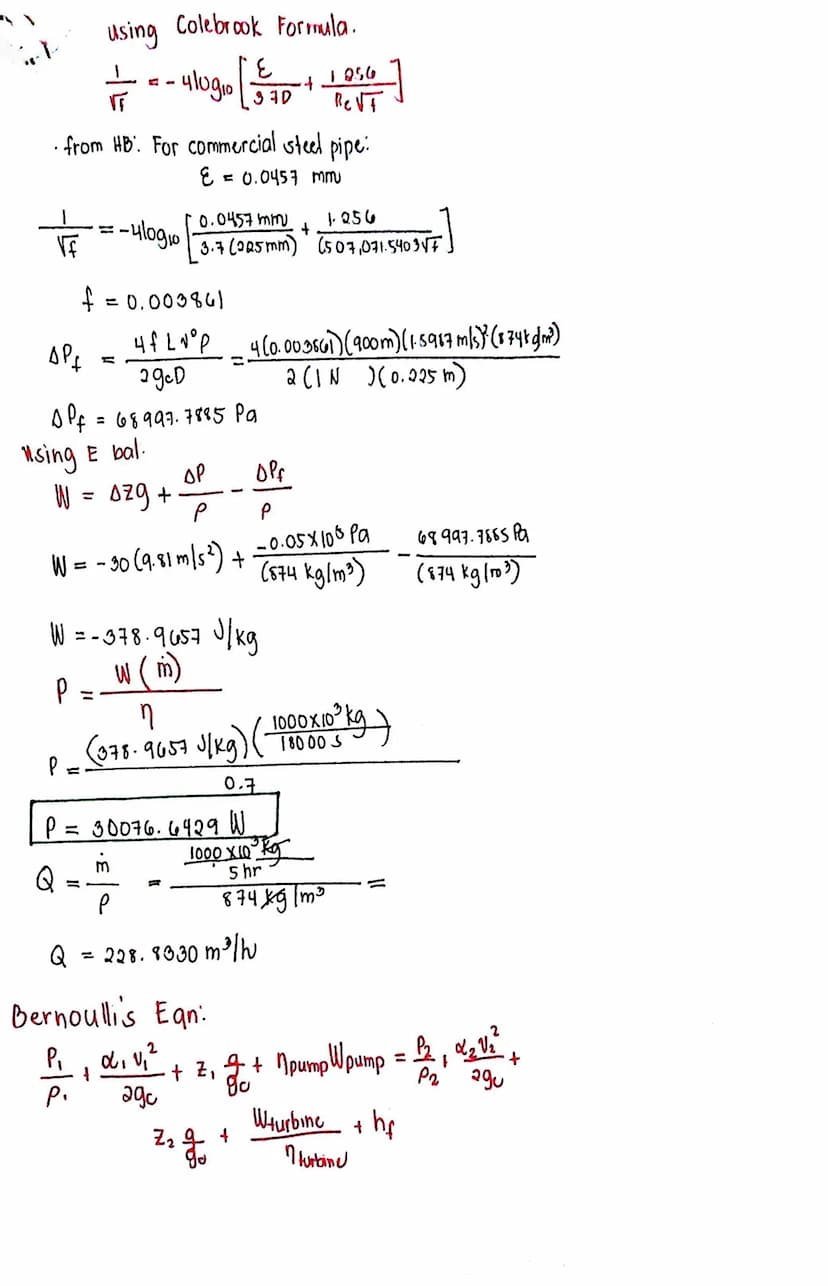 using Colebrook Formula.
1/√f = -4log10 [ε/3.7D + 1.256/Re√f]
. from HB: For commercial steel pipe:
ε = 0.0457 mm
1/√f = -4log10 [0.0457 mm/3.7(225mm) + 1.256/(507,071.5403√f]
f = 0.003861
ΔPf = 4fLv²ρ/2gcD = 4(0.003861)(900m)(1.5967m/s)²(874kg/m³)/2(1N )(0.225m)
ΔPf = 68997.7885 Pa
Using E bal.
W = ΔZg + ΔP/ρ - ΔPf/ρ
W = -30(9.81m/s²) + -0.05x10⁶ Pa/(874 kg/m³) - 68997.7885 Pa/(874 kg/m³)
W = -378.9657 J/kg
P = W(ṁ)/η
P = (378.9657 J/kg)(1000x10³kg/18000s)/0.7
P = 30076.6429 W
Q = ṁ/ρ = 1000x10³kg/5hr/874kg/m³ =
Q = 228.8330 m³/hr
Bernoulli's Eqn:
P₁/ρ₁ + α₁v₁²/2gc + z₁ g/gc + ηpumpWpump = P₂/ρ₂ + α₂V₂²/2gc +
Z₂ g/gc + Wturbine/ηturbine + hf